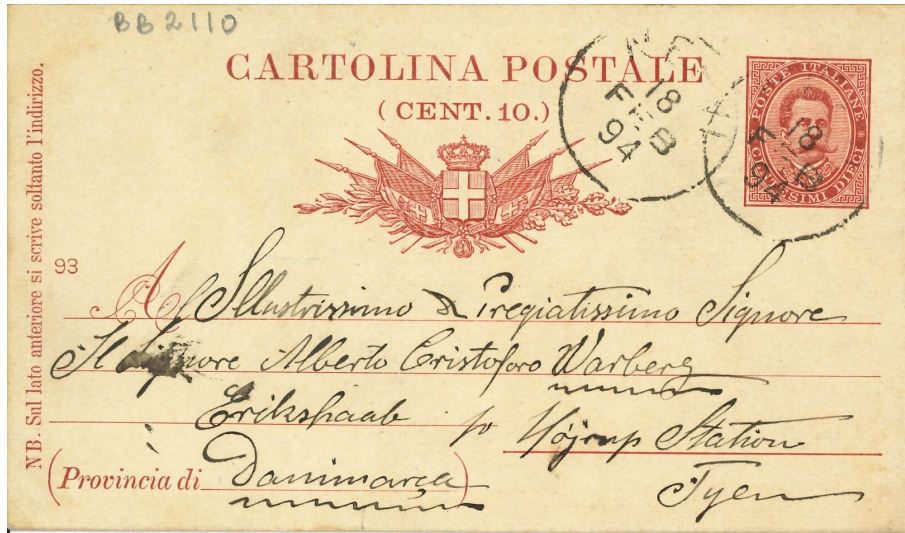 BB2110
CARTOLINA POSTALE
(CENT. 10.)
POSTE ITALIANE
CENTESIMI DIECI
18
FEB
94
18
94
NB. Sul lato anteriore si scrive soltanto l'indirizzo.
93
All Illustrissimo & Pregiatissimo Signore
Il Signore Alberto Cristoforo Warberg
Erikshaab pr Højrup Station
(Provincia di Danimarca)
Fyen